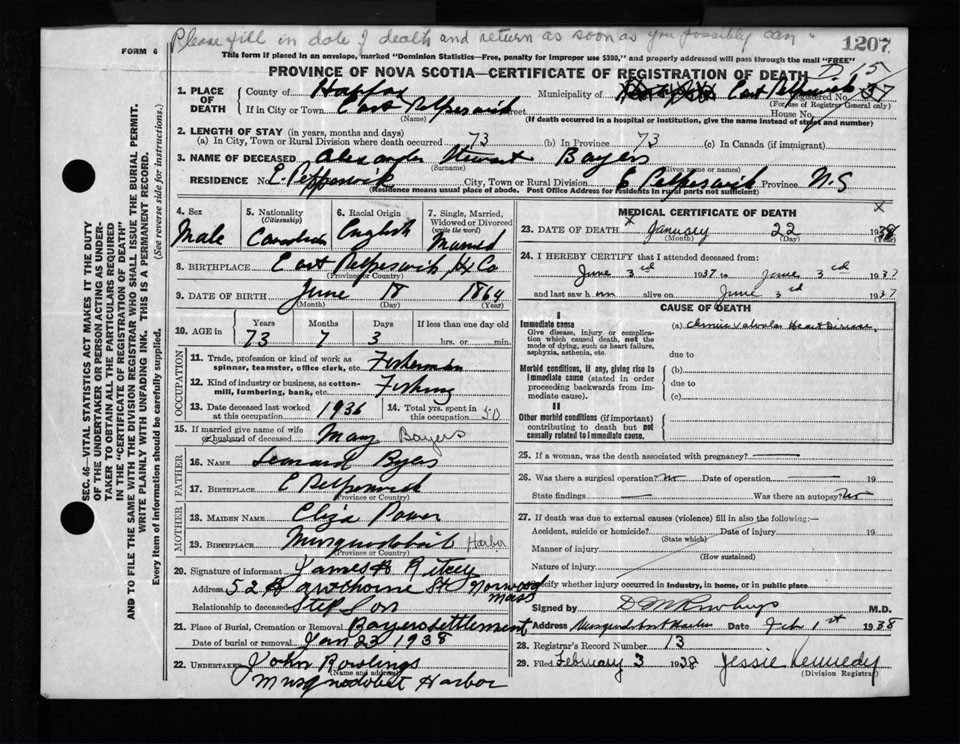 Please fill in date of death and return as soon as you possibly can
1207
FORM 6
This form if placed in an envelope, marked "Dominion Statistics—Free, penalty for improper use $300," and properly addressed will pass through the mail "FREE"
PROVINCE OF NOVA SCOTIA—CERTIFICATE OF REGISTRATION OF DEATH
1. PLACE OF DEATH County of Halifax Municipality of East Petpeswick Registered No.
(For use of Registrar General only)
If in City or Town East Petpeswick Street House No.
(Name) (If death occurred in a hospital or institution, give the name instead of street and number)
2. LENGTH OF STAY (in years, months and days)
(a) In City, Town or Rural Division where death occurred 73 (b) In Province 73 (c) In Canada (if immigrant)
3. NAME OF DECEASED Alexander Stewart Bayers
(Surname) (Given name or names)
RESIDENCE No. E. Petpeswick City, Town or Rural Division E Petpeswick Province N.S
(Residence means usual place of abode. Post Office Address for Residents in rural parts not sufficient)
4. Sex Male
5. Nationality (Citizenship) Canadian
6. Racial Origin English
7. Single, Married, Widowed or Divorced (write the word) Married
8. BIRTHPLACE East Petpeswick Hx Co
(Province or Country)
9. DATE OF BIRTH June 18 1864
(Month) (Day) (Year)
10. AGE in Years Months Days If less than one day old
73 7 3 hrs. or min.
OCCUPATION
11. Trade, profession or kind of work as spinner, teamster, office clerk, etc. Fisherman
12. Kind of industry or business, as cotton-mill, lumbering, bank, etc. Fishing
13. Date deceased last worked at this occupation 1936 14. Total yrs. spent in this occupation 50
15. If married give name of wife or husband of deceased Mary Bayers
FATHER
16. NAME Leonard Byers
17. BIRTHPLACE E Petpeswick
(Province or Country)
MOTHER
18. MAIDEN NAME Eliza Power
19. BIRTHPLACE Musquodoboit Harbor
(Province or Country)
20. Signature of informant James H Ritcey
Address 52 Hawthorne St Norwood Mass
Relationship to deceased Step Son
21. Place of Burial, Cremation or Removal Bayers settlement
Date of burial or removal Jan 23 1938
22. UNDERTAKER John Rowlings
(Name and address)
Musquodoboit Harbor
MEDICAL CERTIFICATE OF DEATH x
23. DATE OF DEATH x January 22 1938
(Month) (Day) (Year)
24. I HEREBY CERTIFY that I attended deceased from:
June 3rd 1937 to June 3rd 1937
and last saw him alive on June 3rd 1937
CAUSE OF DEATH
I
Immediate cause (a) Chronic Valvular Heart Disease
Give disease, injury or complication which caused death, not the mode of dying, such as heart failure, asphyxia, asthenia, etc. due to
Morbid conditions, if any, giving rise to immediate cause (stated in order proceeding backwards from immediate cause). (b)
due to
(c)
II
Other morbid conditions (if important) contributing to death but not causally related to immediate cause.
25. If a woman, was the death associated with pregnancy?
26. Was there a surgical operation? No Date of operation 19
State findings Was there an autopsy? No
27. If death was due to external causes (violence) fill in also the following:—
Accident, suicide or homicide? Date of injury 19
(State which)
Manner of injury
(How sustained)
Nature of injury
Specify whether injury occurred in industry, in home, or in public place
Signed by M.D.
Address Musquodoboit Harbor Date Feb 1st 1938
28. Registrar's Record Number 13
29. Filed February 3 1938 Jessie Kennedy
(Division Registrar)
SEC. 46—VITAL STATISTICS ACT MAKES IT THE DUTY
OF THE UNDERTAKER OR PERSON ACTING AS UNDER-
TAKER TO OBTAIN ALL THE PARTICULARS REQUIRED
IN THE "CERTIFICATE OF REGISTRATION OF DEATH"
AND TO FILE THE SAME WITH THE DIVISION REGISTRAR WHO SHALL ISSUE THE BURIAL PERMIT.
WRITE PLAINLY WITH UNFADING INK. THIS IS A PERMANENT RECORD.
Every item of information should be carefully supplied. (See reverse side for instructions.)